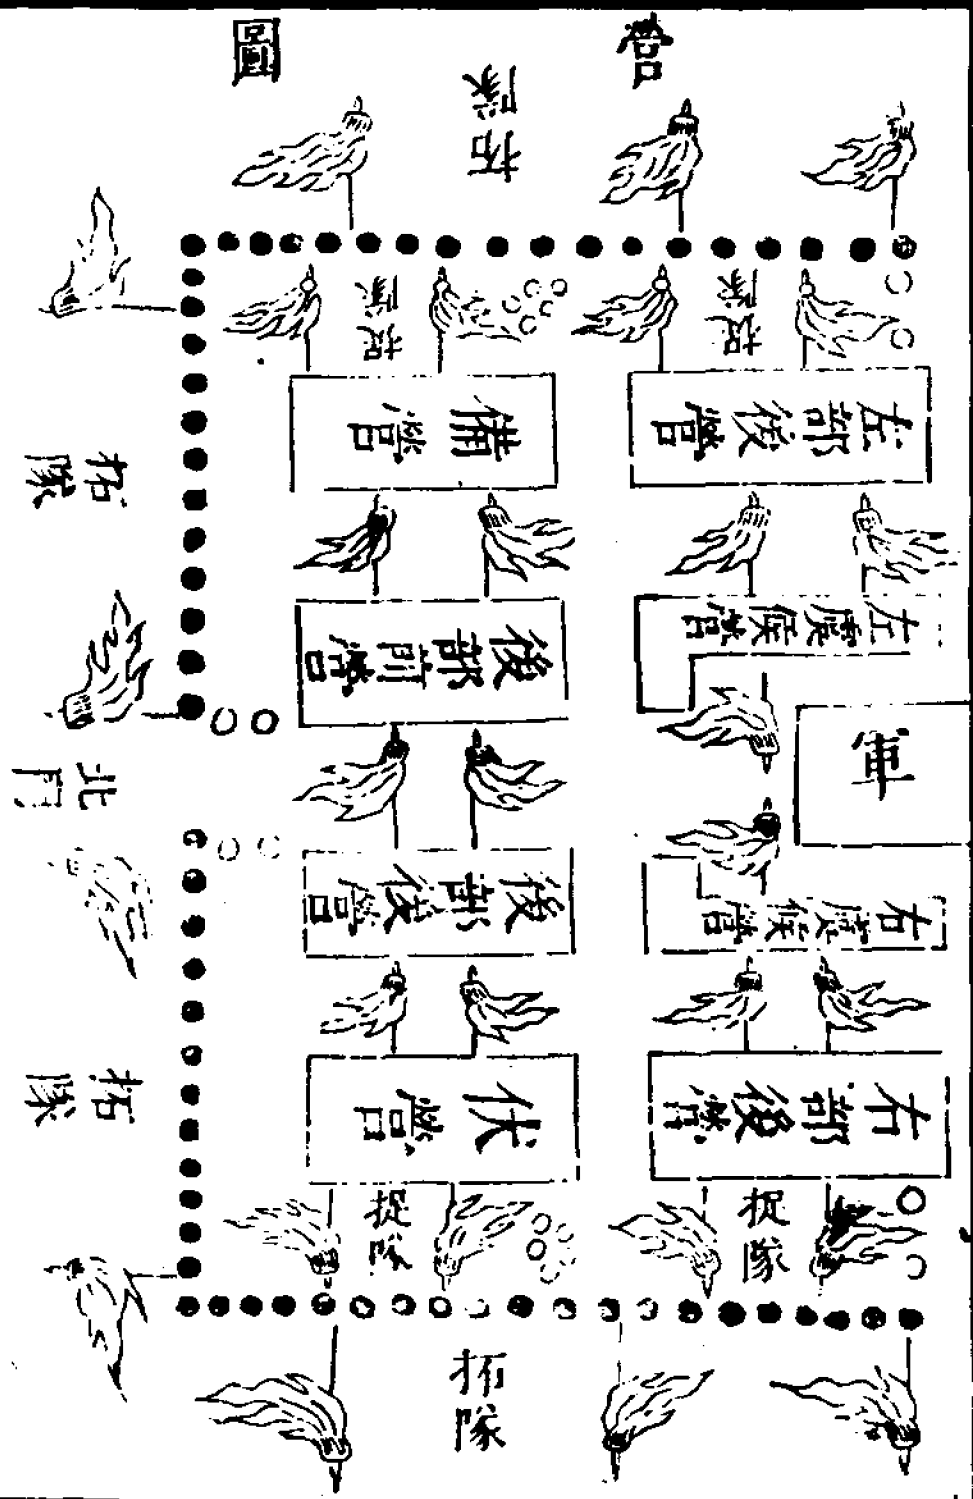 營圖
拓隊
捉隊
捉隊
左部後營
備營
左虞候營
後部前營
軍
右虞候營
後部後營
右部後營
伏營
捉隊
捉隊
拓隊
拓隊
北門
拓隊